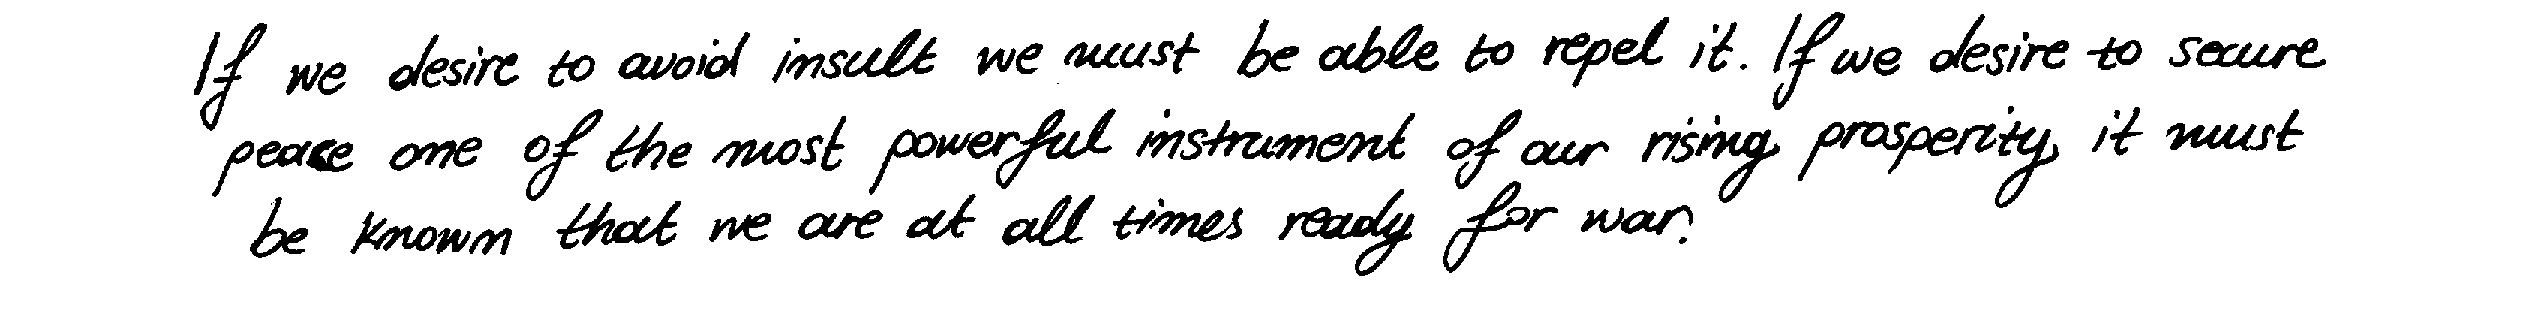 If we desire to avoid insult we must be able to repel it. If we desire to secure
peace one of the most powerful instrument of our rising prosperity, it must
be known that we are at all times ready for war.